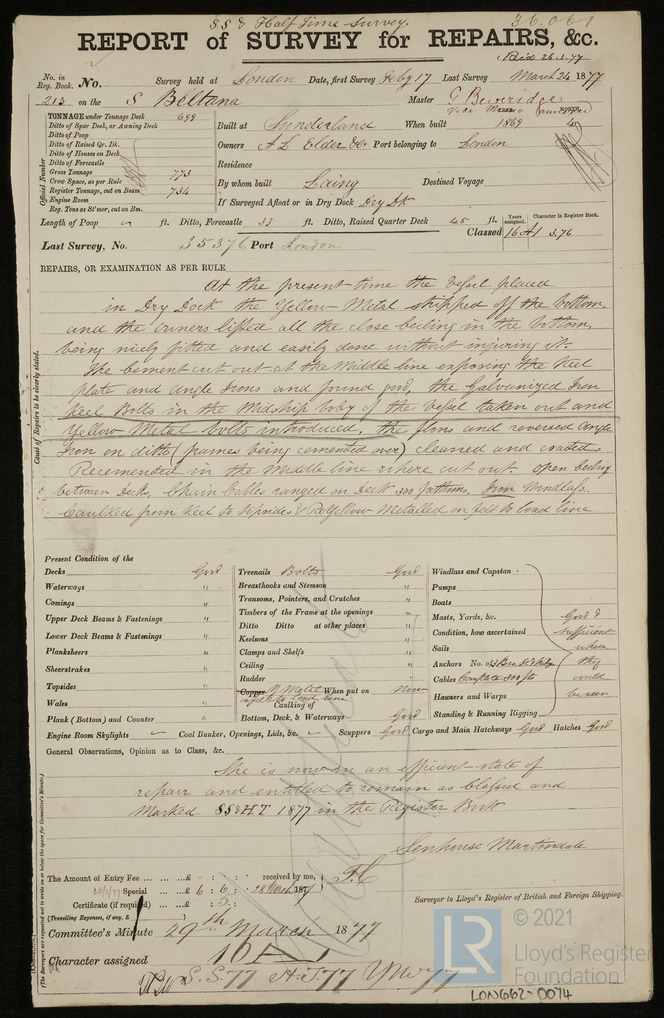 SS & Half Time Survey.
36.061
REPORT of SURVEY for REPAIRS, &c.
Rec'd 26.3.77
No. in Reg. Book. No. Survey held at London Date, first Survey Feby 17 Last Survey March 24 1877
213 on the S Beltana Master G Beveridge
TONNAGE under Tonnage Deck 699
Ditto of Spar Deck, or Awning Deck
Ditto of Poop
Ditto of Raised Qr. Dk.
Ditto of Houses on Deck
Ditto of Forecastle
Gross Tonnage 773
Crew Space, as per Rule
Register Tonnage, cut on Beam 734
Engine Room
Reg. Tons as St'mer, cut on Bm.
Official Number
Built at Sunderland When built 1869
Owners A L Elder & Co Port belonging to London
Residence
By whom built Laing Destined Voyage
If Surveyed Afloat or in Dry Dock Dry Dk
Length of Poop ft. Ditto, Forecastle 33 ft. Ditto, Raised Quarter Deck 45 ft.
Years assigned. Character in Register Book.
Classed 16 A1 3.76
Last Survey, No. 35376 Port London
REPAIRS, OR EXAMINATION AS PER RULE
At the present time the Vessel placed
in Dry Dock the Yellow Metal stripped off the bottom,
and the limers lifted all the close ceiling in the bottom,
being nicely fitted and easily done without injuring it.
The cement cut out at the Middle line exposing the Keel
plate and angle Irons and found good, the Galvanized Iron
Keel Bolts in the Midship body of the Vessel taken out and
Yellow Metal bolts introduced, the floors and reversed angle
Iron on ditto (frames being cemented over) cleaned and coated.
Recemented in the Middle line where cut out. open ceiling
between Decks, Chain Cables ranged on Deck 300 fathoms, Iron Windlass.
Caulked from Keel to Topsides & ReYellow Metalled on felt to load line
Cause of Repairs to be clearly stated.
Present Condition of the
Decks Good
Waterways "
Comings "
Upper Deck Beams & Fastenings "
Lower Deck Beams & Fastenings "
Planksheers "
Sheerstrakes "
Topsides "
Wales "
Plank (Bottom) and Counter "
Treenails Bolts Good
Breasthooks and Stemson "
Transoms, Pointers, and Crutches "
Timbers of the Frame at the openings "
Ditto Ditto at other places "
Keelsons "
Clamps and Shelfs "
Ceiling "
Rudder "
Copper Y Metal When put on New
Caulking of
Bottom, Deck, & Waterways Good
Windlass and Capstan
Pumps
Boats
Masts, Yards, &c.
Condition, how ascertained
Sails
Anchors No. of
Cables Complete 300 fs
Hawsers and Warps
Standing & Running Rigging
Good &
sufficient
where
they
could
be seen
Engine Room Skylights Coal Bunker, Openings, Lids, &c. Scuppers Good Cargo and Main Hatchways Good Hatches Good
General Observations, Opinion as to Class, &c.
She is now in an efficient state of
repair and entitled to remain as Classed and
Marked SS&HT 1877 in the Register Book
Senhouse Martindale
Surveyor to Lloyd's Register of British and Foreign Shipping.
The Amount of Entry Fee £ : : received by me,
Special £ 6 : 6 : 28 March 1877
Certificate (if required)
(Travelling Expenses, if any, £
Committee's Minute 29th March 1877
Character assigned 16 A1
S.S. 77 H.T. 77
© 2021
LR
Lloyd's Register
Foundation
LON662-0074